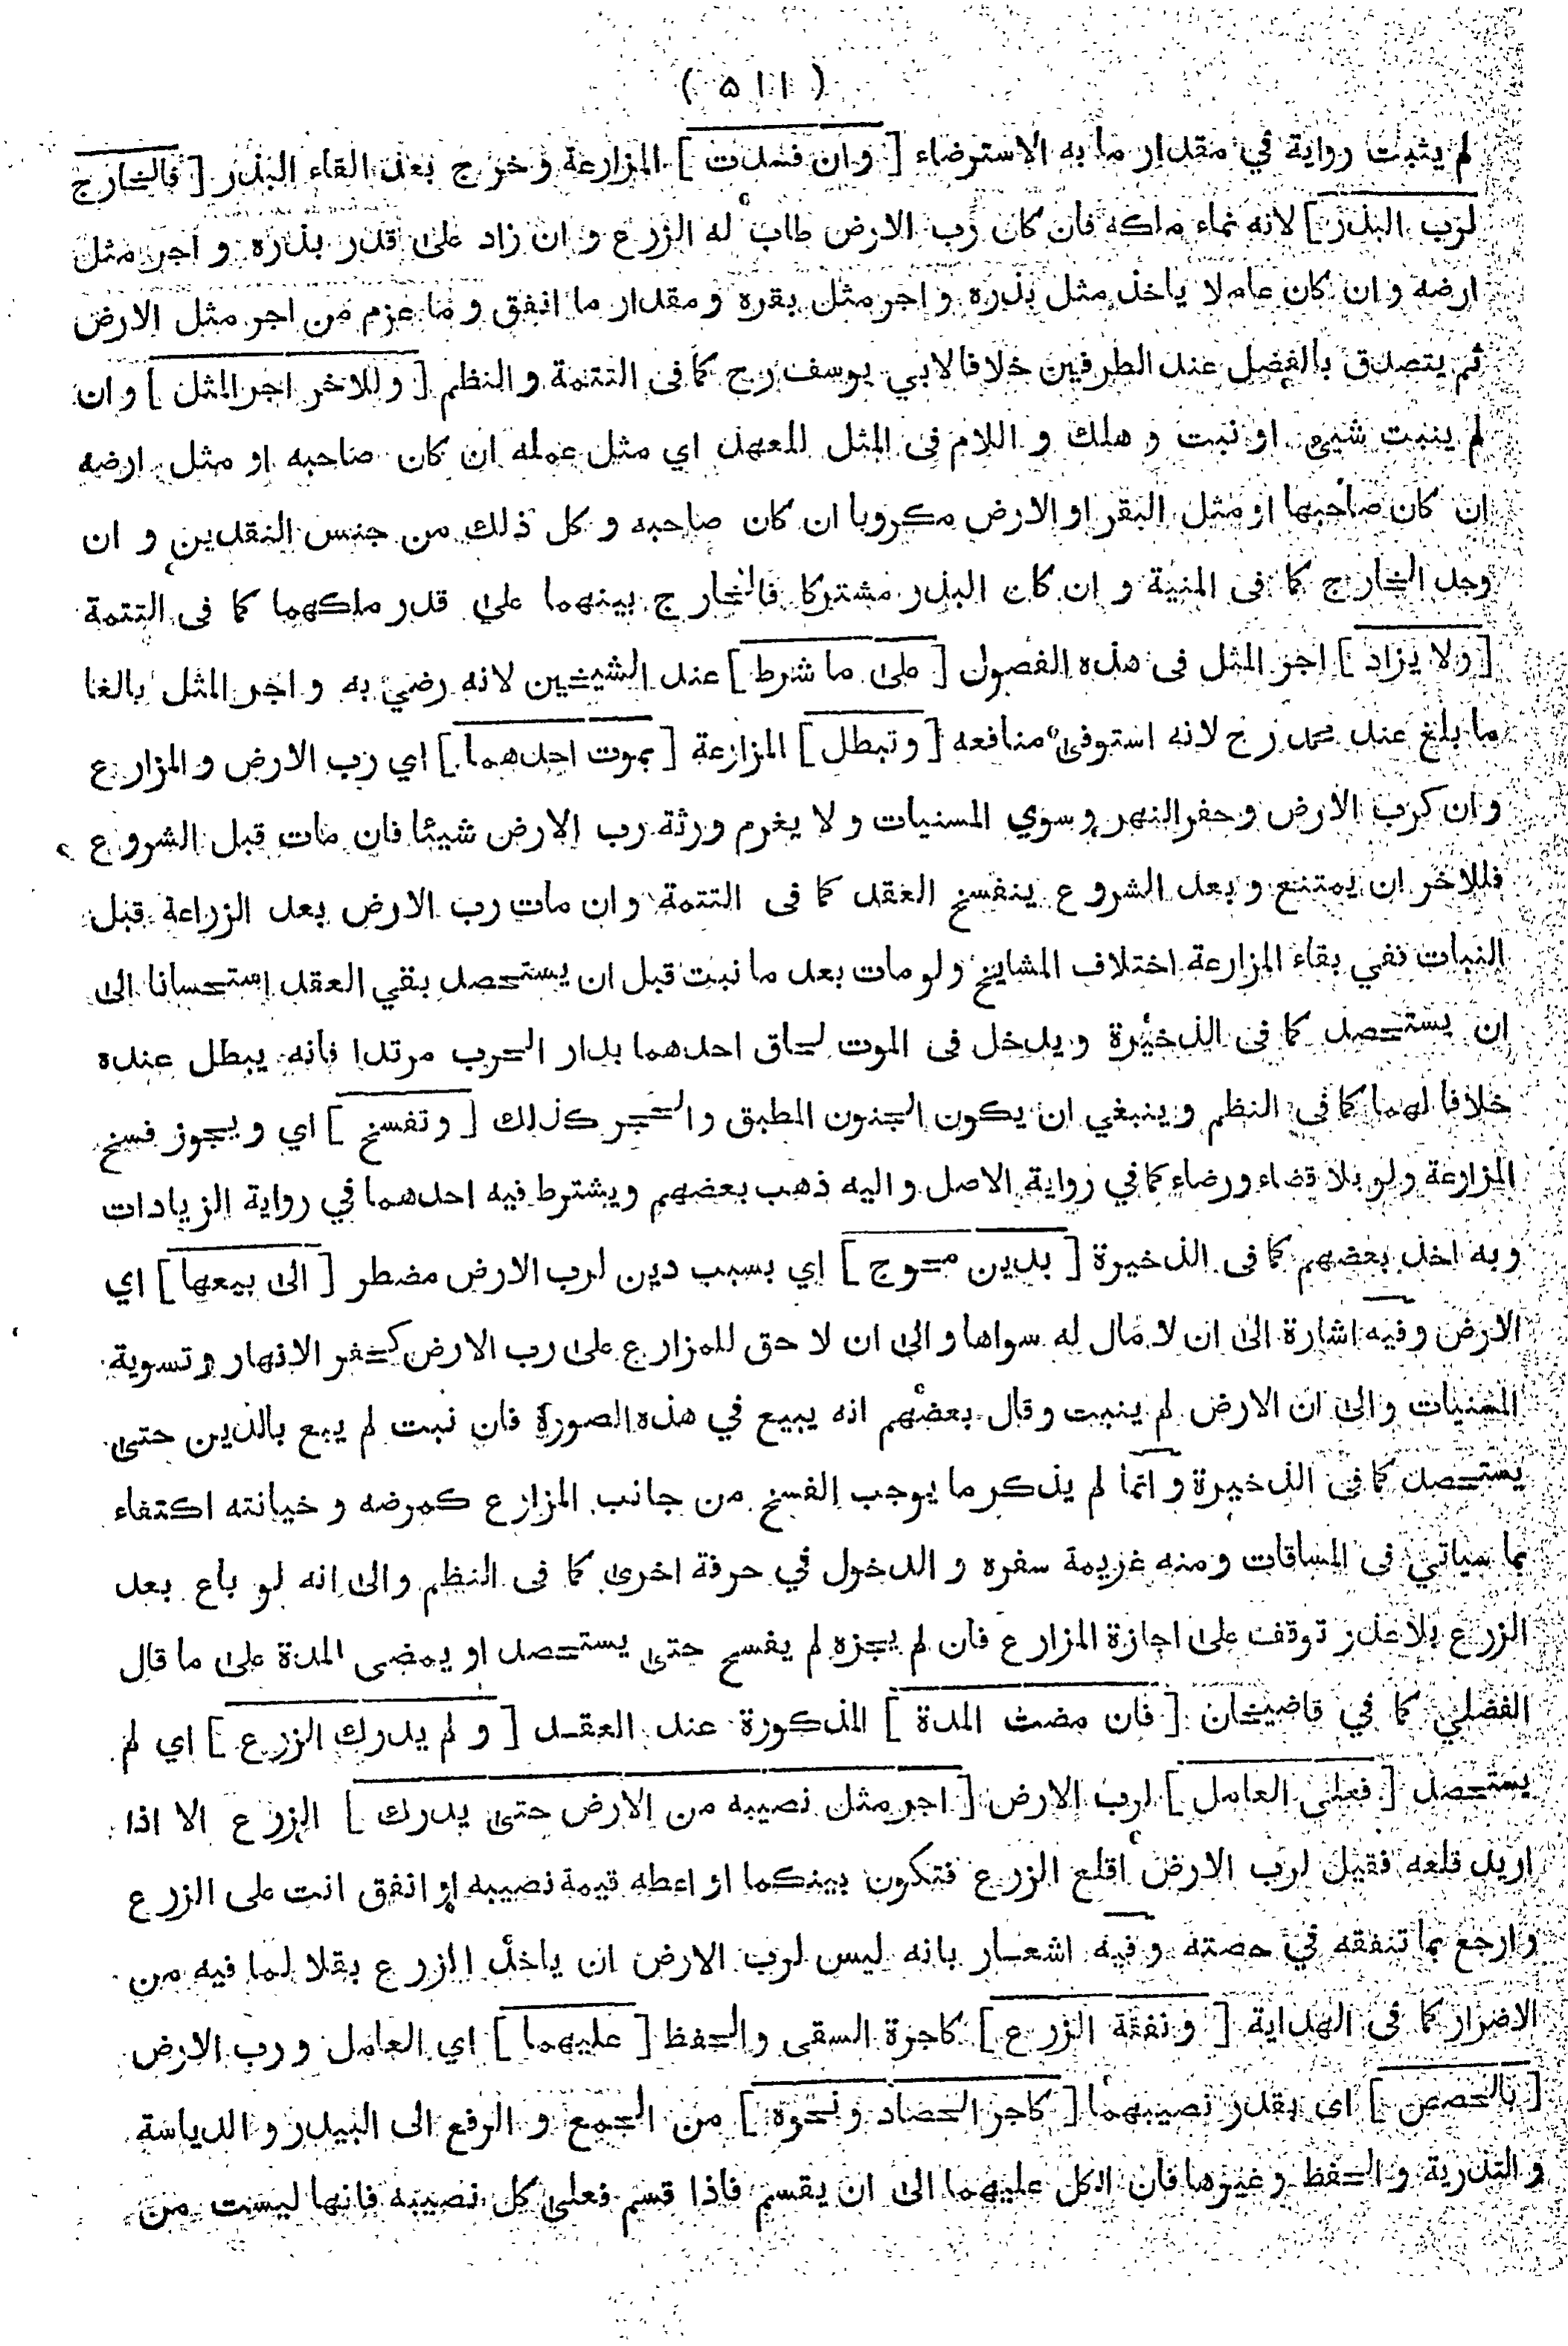 ( ۵۱۱ )
لم يثبت رواية في مقدار ما به الاسترضاء [ وان فسدت ] المزارعة وخرج بعد القاء البذر [ فالخارج
لرب البذر ] لانه نماء ملكه فان كان رب الارض طاب له الزرع و ان زاد على قدر بذره و اجر مثل
ارضه وان كان عاملا ياخذ مثل بذره و اجر مثل بقره و مقدار ما انفق و ما غرم من اجر مثل الارض
ثم يتصدق بالفضل عند الطرفين خلافا لابي يوسف رح كما فى التتمة و النظم [ وللاخر اجر المثل ] و ان
لم ينبت شيء او نبت و هلك و اللام فى المثل للعهد اي مثل عمله ان كان صاحبه او مثل ارضه
ان كان صاحبها او مثل البقر او الارض مكروبا ان كان صاحبه و كل ذلك من جنس النقدين و ان
وجد الخارج كما فى المنية و ان كان البذر مشتركا فالخارج بينهما على قدر ملكهما كما فى التتمة
[ ولا يزاد ] اجر المثل فى هذه الفصول [ على ما شرط ] عند الشيخين لانه رضي به و اجر المثل بالغا
ما بلغ عند محمد رح لانه استوفى منافعه [ وتبطل ] المزارعة [ بموت احدهما ] اي رب الارض و المزارع
وان كرب الارض وحفر النهر وسوي المسنيات و لا يغرم ورثة رب الارض شيئا فان مات قبل الشروع
فللاخر ان يمتنع و بعد الشروع ينفسخ العقد كما فى التتمة وان مات رب الارض بعد الزراعة قبل
النبات ففي بقاء المزارعة اختلاف المشايخ ولو مات بعد ما نبت قبل ان يستحصد بقي العقد استحسانا الى
ان يستحصد كما فى الذخيرة و يدخل فى الموت لحاق احدهما بدار الحرب مرتدا فانه يبطل عنده
خلافا لهما كما فى النظم وينبغي ان يكون الجنون المطبق والحجر كذلك [ وتفسخ ] اي ويجوز فسخ
المزارعة ولو بلا قضاء ورضاء كما في رواية الاصل واليه ذهب بعضهم ويشترط فيه احدهما في رواية الزيادات
وبه اخذ بعضهم كما فى الذخيرة [ بدين محوج ] اي بسبب دين لرب الارض مضطر [ الى بيعها ] اي
الارض وفيه اشارة الى ان لا مال له سواها والى ان لا حق للمزارع على رب الارض كحفر الانهار وتسوية
المسنيات والى ان الارض لم ينبت وقال بعضهم انه يبيع في هذه الصورة فان نبت لم يبع بالدين حتى
يستحصد كما فى الذخيرة و انما لم يذكر ما يوجب الفسخ من جانب المزارع كمرضه و خيانته اكتفاء
بما سياتي فى المساقات ومنه عزيمة سفره و الدخول في حرفة اخرى كما فى النظم والى انه لو باع بعد
الزرع بلا عذر توقف على اجازة المزارع فان لم يجزه لم يفسخ حتى يستحصد او يمضى المدة على ما قال
الفضلي كما في قاضيخان [ فان مضت المدة ] المذكورة عند العقد [ و لم يدرك الزرع ] اي لم
يستحصد [ فعلى العامل ] لرب الارض [ اجر مثل نصيبه من الارض حتى يدرك ] الزرع الا اذا
اريد قلعه فقيل لرب الارض اقلع الزرع فتكون بينكما او اعطه قيمة نصيبه او انفق انت على الزرع
وارجع بما تنفقه في حصته وفيه اشعار بانه ليس لرب الارض ان ياخذ الزرع بقلا لما فيه من
الاضرار كما فى الهداية [ ونفقة الزرع ] كاجرة السقى والحفظ [ عليهما ] اي العامل و رب الارض
[ بالحصص ] اى بقدر نصيبهما [ كاجر الحصاد ونحوه ] من الجمع و الرفع الى البيدر و الدياسة
و التذرية و الحفظ وغيرها فان الكل عليهما الى ان يقسم فاذا قسم فعلى كل نصيبه فانها ليست من